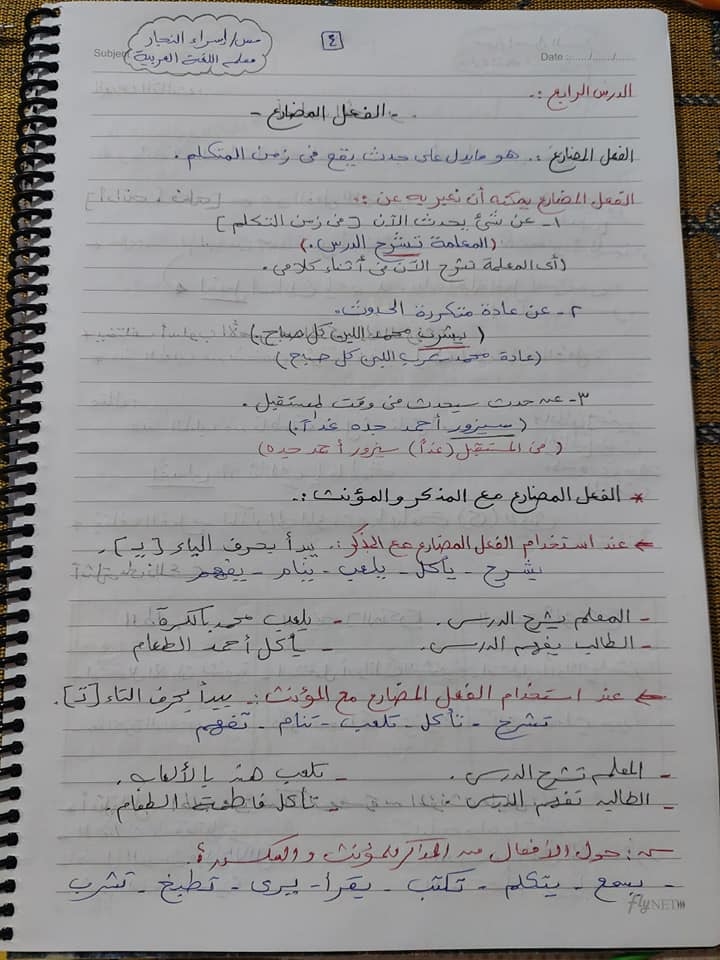 مس/ إسراء النجار
معلمة اللغة العربية
٤
Subject
Date :....../....../......
الدرس الرابع :.
- الفعل المضارع -
الفعل المضارع :. هو ما يدل على حدث يقع في زمن المتكلم .
الفعل المضارع يمكنه أن نعبر به عن :.
١- عن شئ يحدث الآن [ في زمن التكلم ]
(المعلمة تشرح الدرس .)
(أي المعلمة تشرح الآن في أثناء كلامي .
٢- عن عادة متكررة الحدوث .
( يشرب محمد اللبن كل صباح .)
(عادة محمد يشرب اللبن كل صباح )
٣- عن حدث سيحدث في وقت لمستقبل .
( سيزور أحمد جده غداً .)
( في المستقبل (غداً) سيزور أحمد جده)
* الفعل المضارع مع المذكر والمؤنث :.
← عند استخدام الفعل المضارع مع المذكر :. يبدأ بحرف الياء [يـ] .
يشرح - يأكل - يلعب - ينام - يفهم
- المعلم يشرح الدرس . - يلعب محمد بالكرة .
- الطالب يفهم الدرس . - يأكل أحمد الطعام
← عند استخدام الفعل المضارع مع المؤنث :. يبدأ بحرف التاء [تـ] .
تشرح - تأكل - تلعب - تنام - تفهم
- المعلمة تشرح الدرس . - تلعب هند بالألعاب .
- الطالبة تفهم الدرس . - تأكل فاطمة الطعام .
س: حول الأفعال من المذكر للمؤنث و العكس ؟
- يسمع - يتكلم - تكتب - يقرأ - يرى - تطبخ - تشرب
flyNET